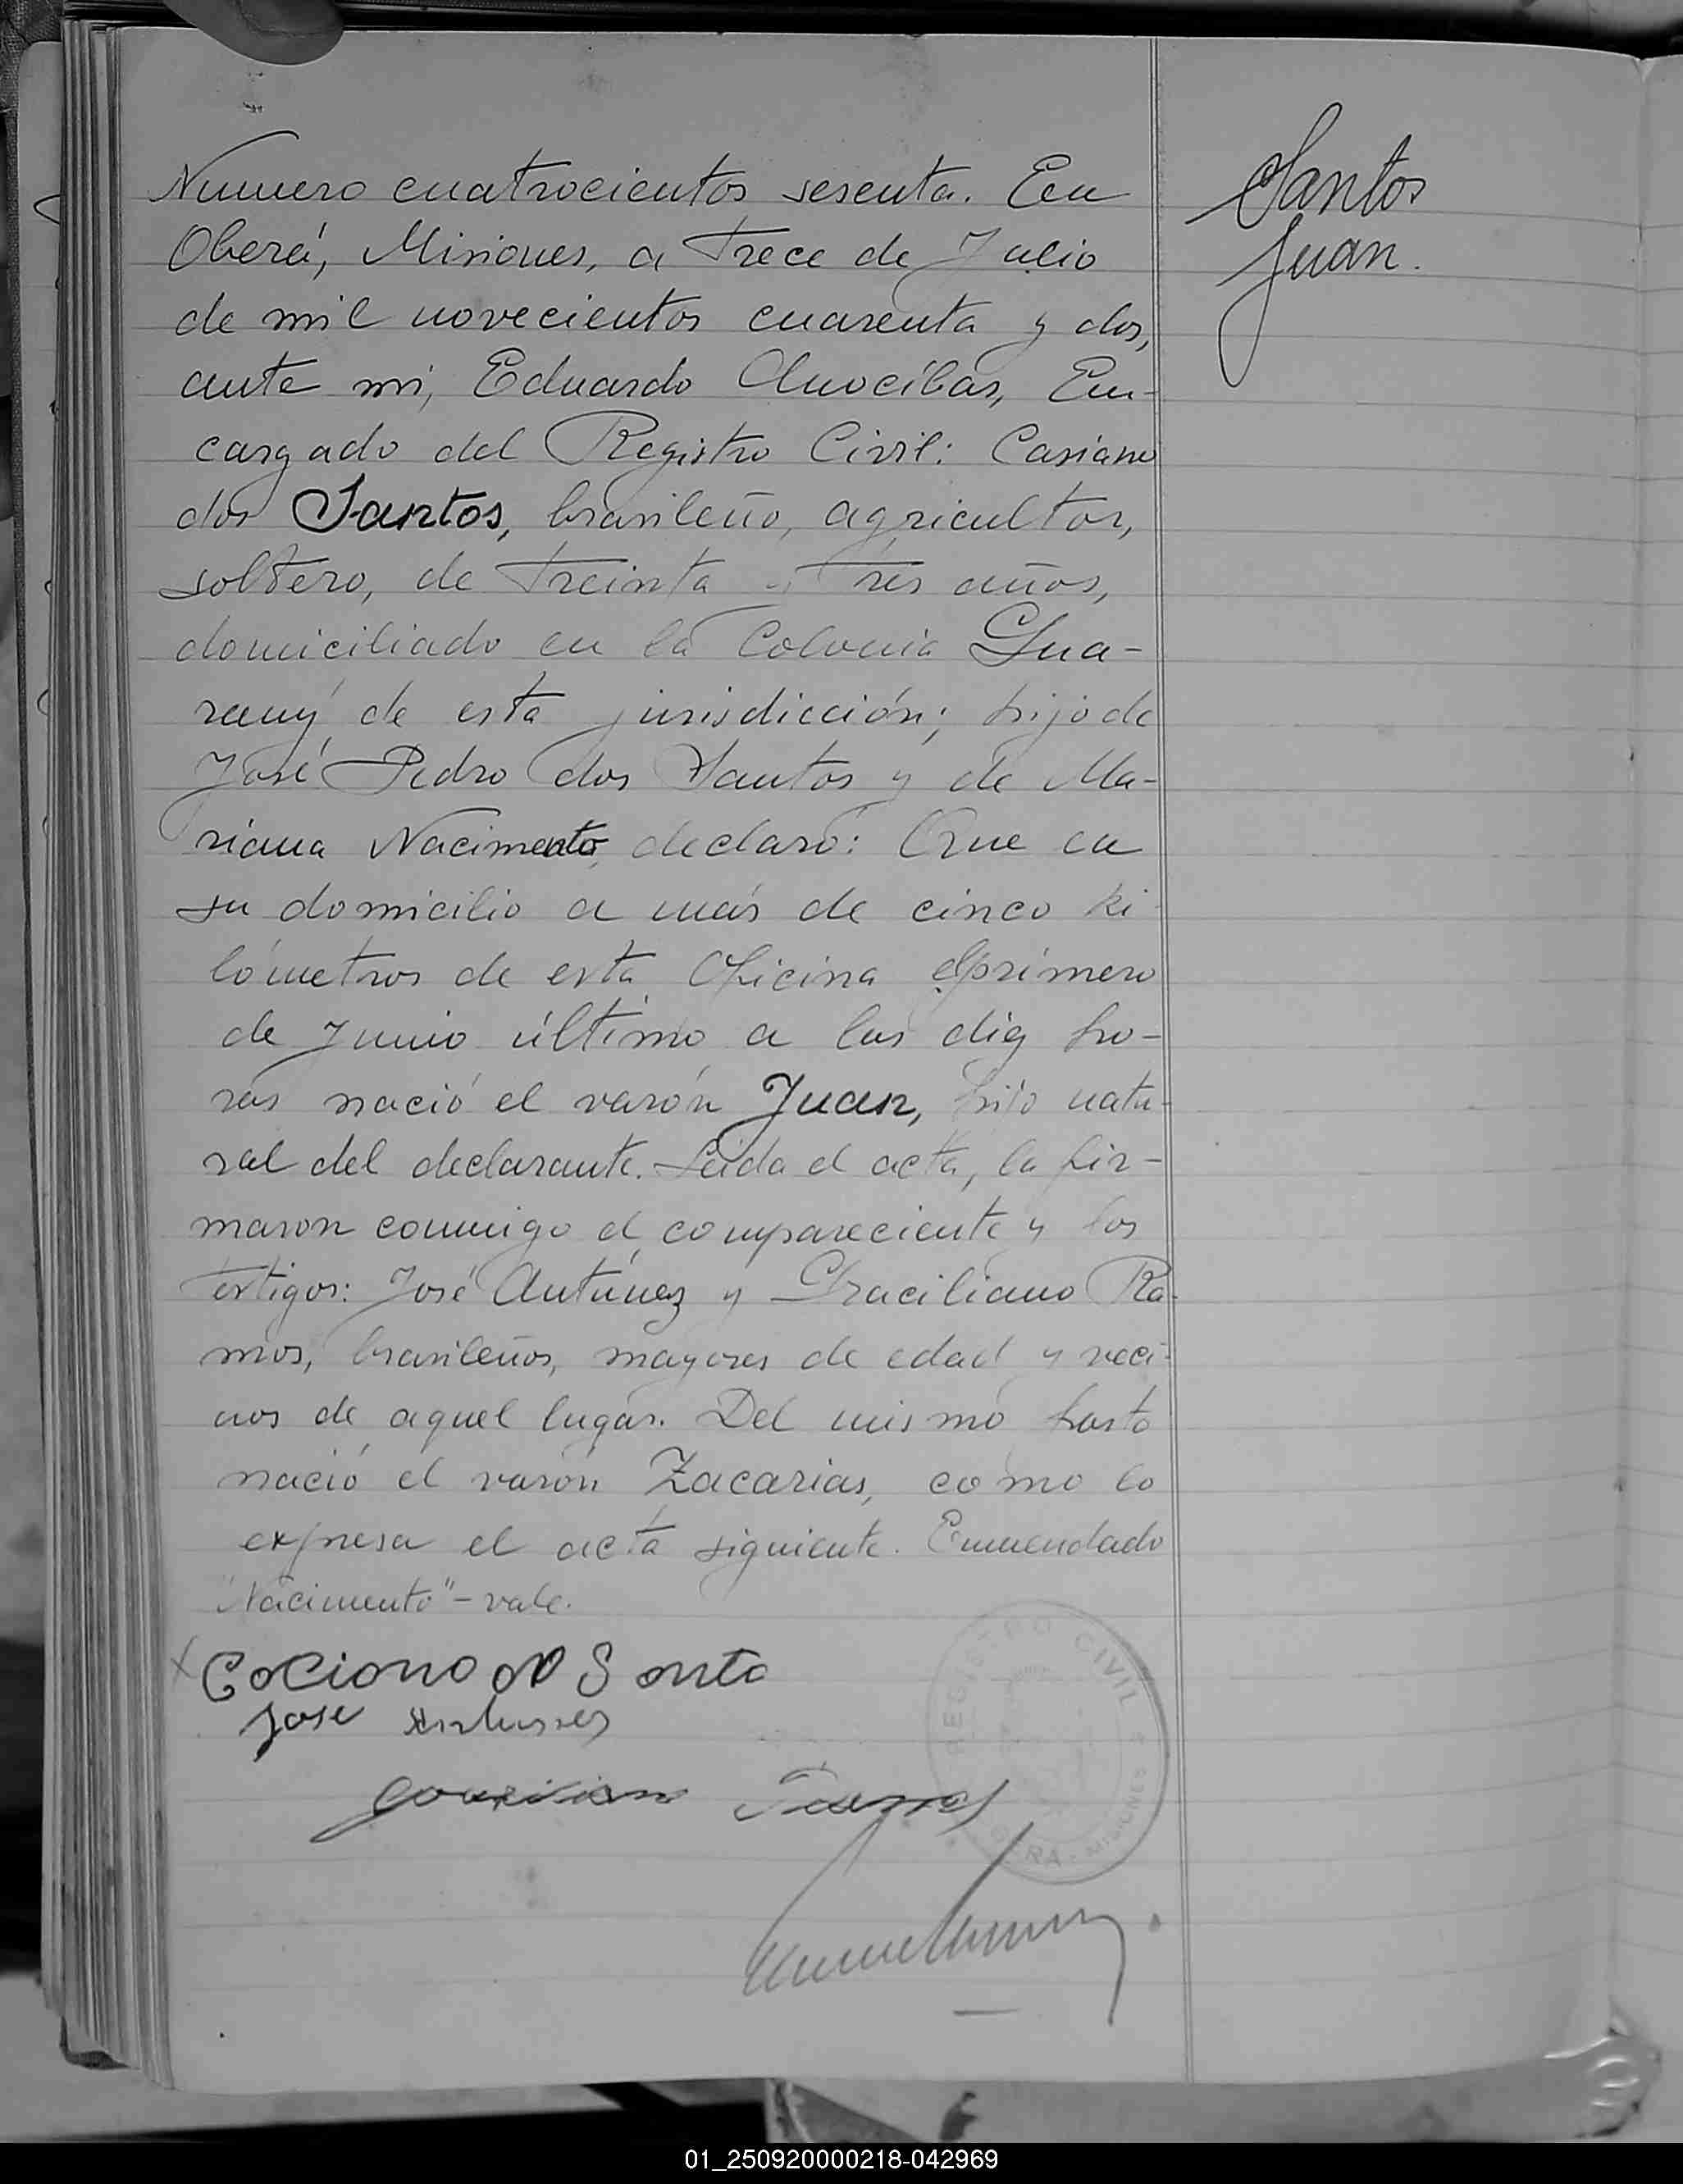 Numero cuatrocientos sesenta. En
Oberá, Misiones, a trece de Julio
de mil novecientos cuarenta y dos,
ante mi, Eduardo Anocíbar, En-
cargado del Registro Civil: Casiano
dos Santos, brasileño, agricultor,
soltero, de treinta y tres años,
domiciliado en la Colonia Gua-
rany de esta jurisdicción; hijo de
José Pedro dos Santos y de Ma-
riana Nacimento, declaró: Que en
su domicilio a más de cinco ki
lómetros de esta Oficina el primero
de Junio último a las diez ho-
ras nació el varón Juan, hijo natu-
ral del declarante. Leida el acta, la fir-
maron conmigo el compareciente y los
testigos: José Antúnez y Graciliano Ra-
mos, brasileños, mayores de edad y veci-
nos de aquel lugar. Del mismo parto
nació el varón Zacarias, como lo
expresa el acta siguiente. Enmendado
"Nacimento" - vale.
Santos
Juan.
x Cociono do Sonto
Jose Antunes
Ramos
REGISTRO CIVIL
OBERA - MISIONES
01_250920000218-042969